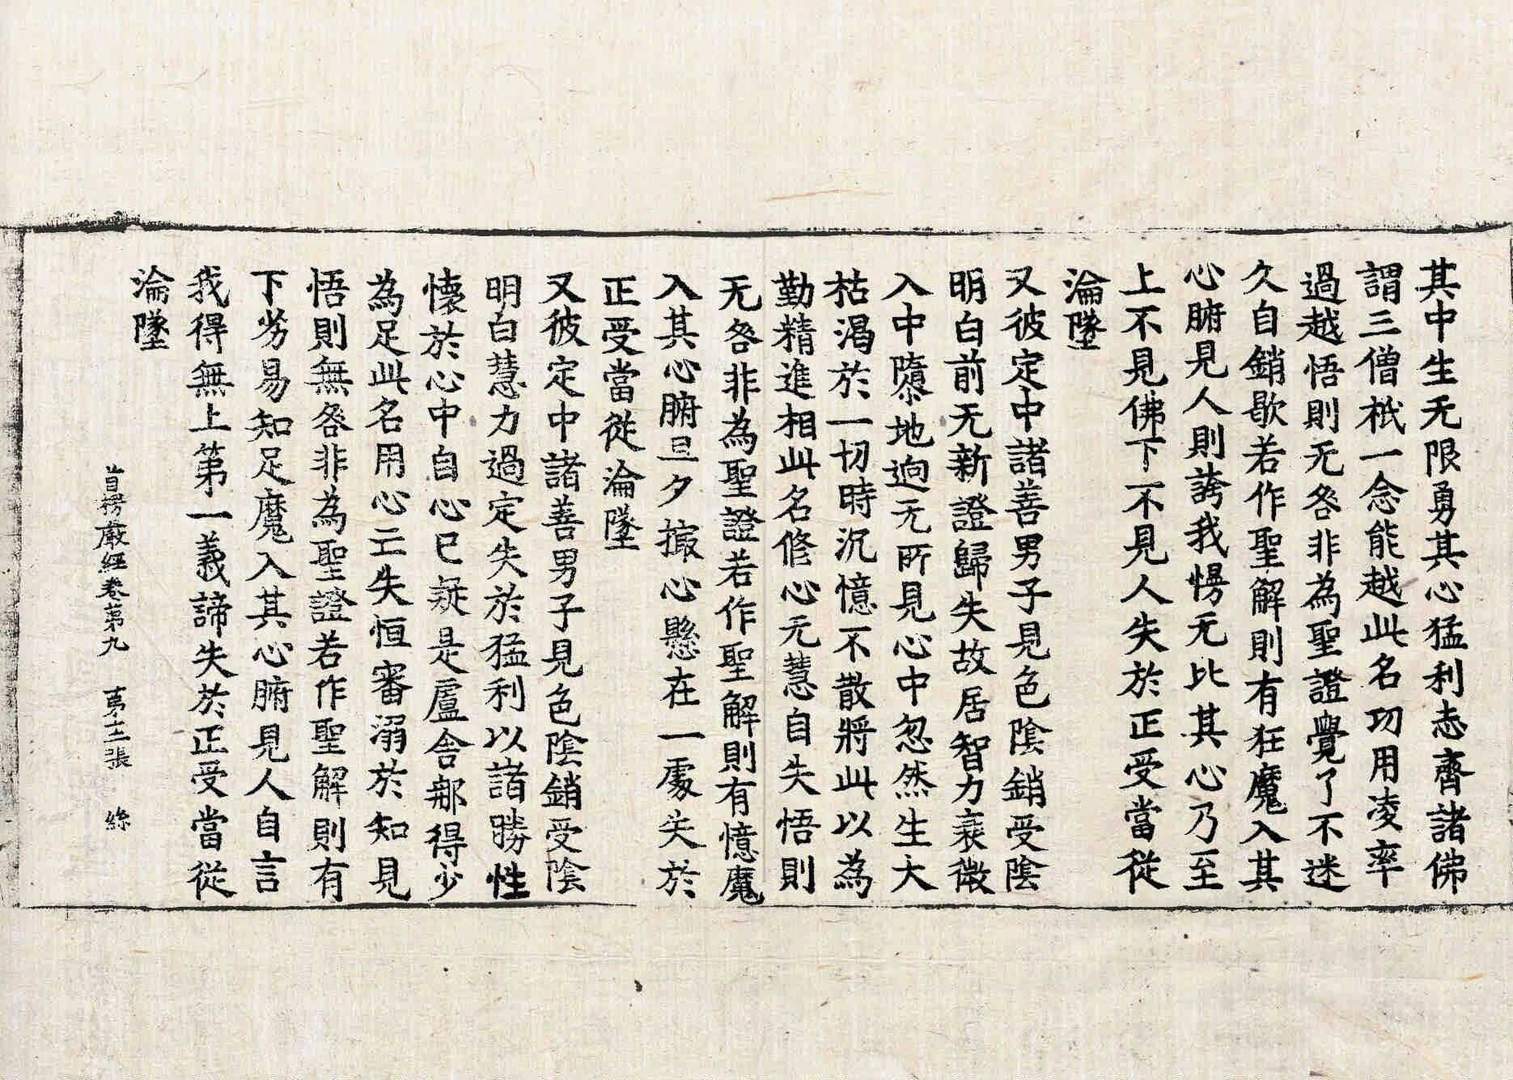 其中生无限勇其心猛利志齊諸佛
謂三僧祇一念能越此名功用凌率
過越悟則无咎非為聖證覺了不迷
久自銷歇若作聖解則有狂魔入其
心腑見人則誇我慢无比其心乃至
上不見佛下不見人失於正受當從
淪墜
又彼定中諸善男子見色陰銷受陰
明白前无新證歸失故居智力衰微
入中隳地逈无所見心中忽然生大
枯渴於一切時沉憶不散將此以為
勤精進相此名修心无慧自失悟則
无咎非為聖證若作聖解則有憶魔
入其心腑旦夕撮心懸在一處失於
正受當從淪墜
又彼定中諸善男子見色陰銷受陰
明白慧力過定失於猛利以諸勝性
懷於心中自心已疑是盧舍那得少
為足此名用心亡失恒審溺於知見
悟則無咎非為聖證若作聖解則有
下劣易知足魔入其心腑見人自言
我得無上第一義諦失於正受當從
淪墜
首楞嚴經卷第九 第十二張 絲